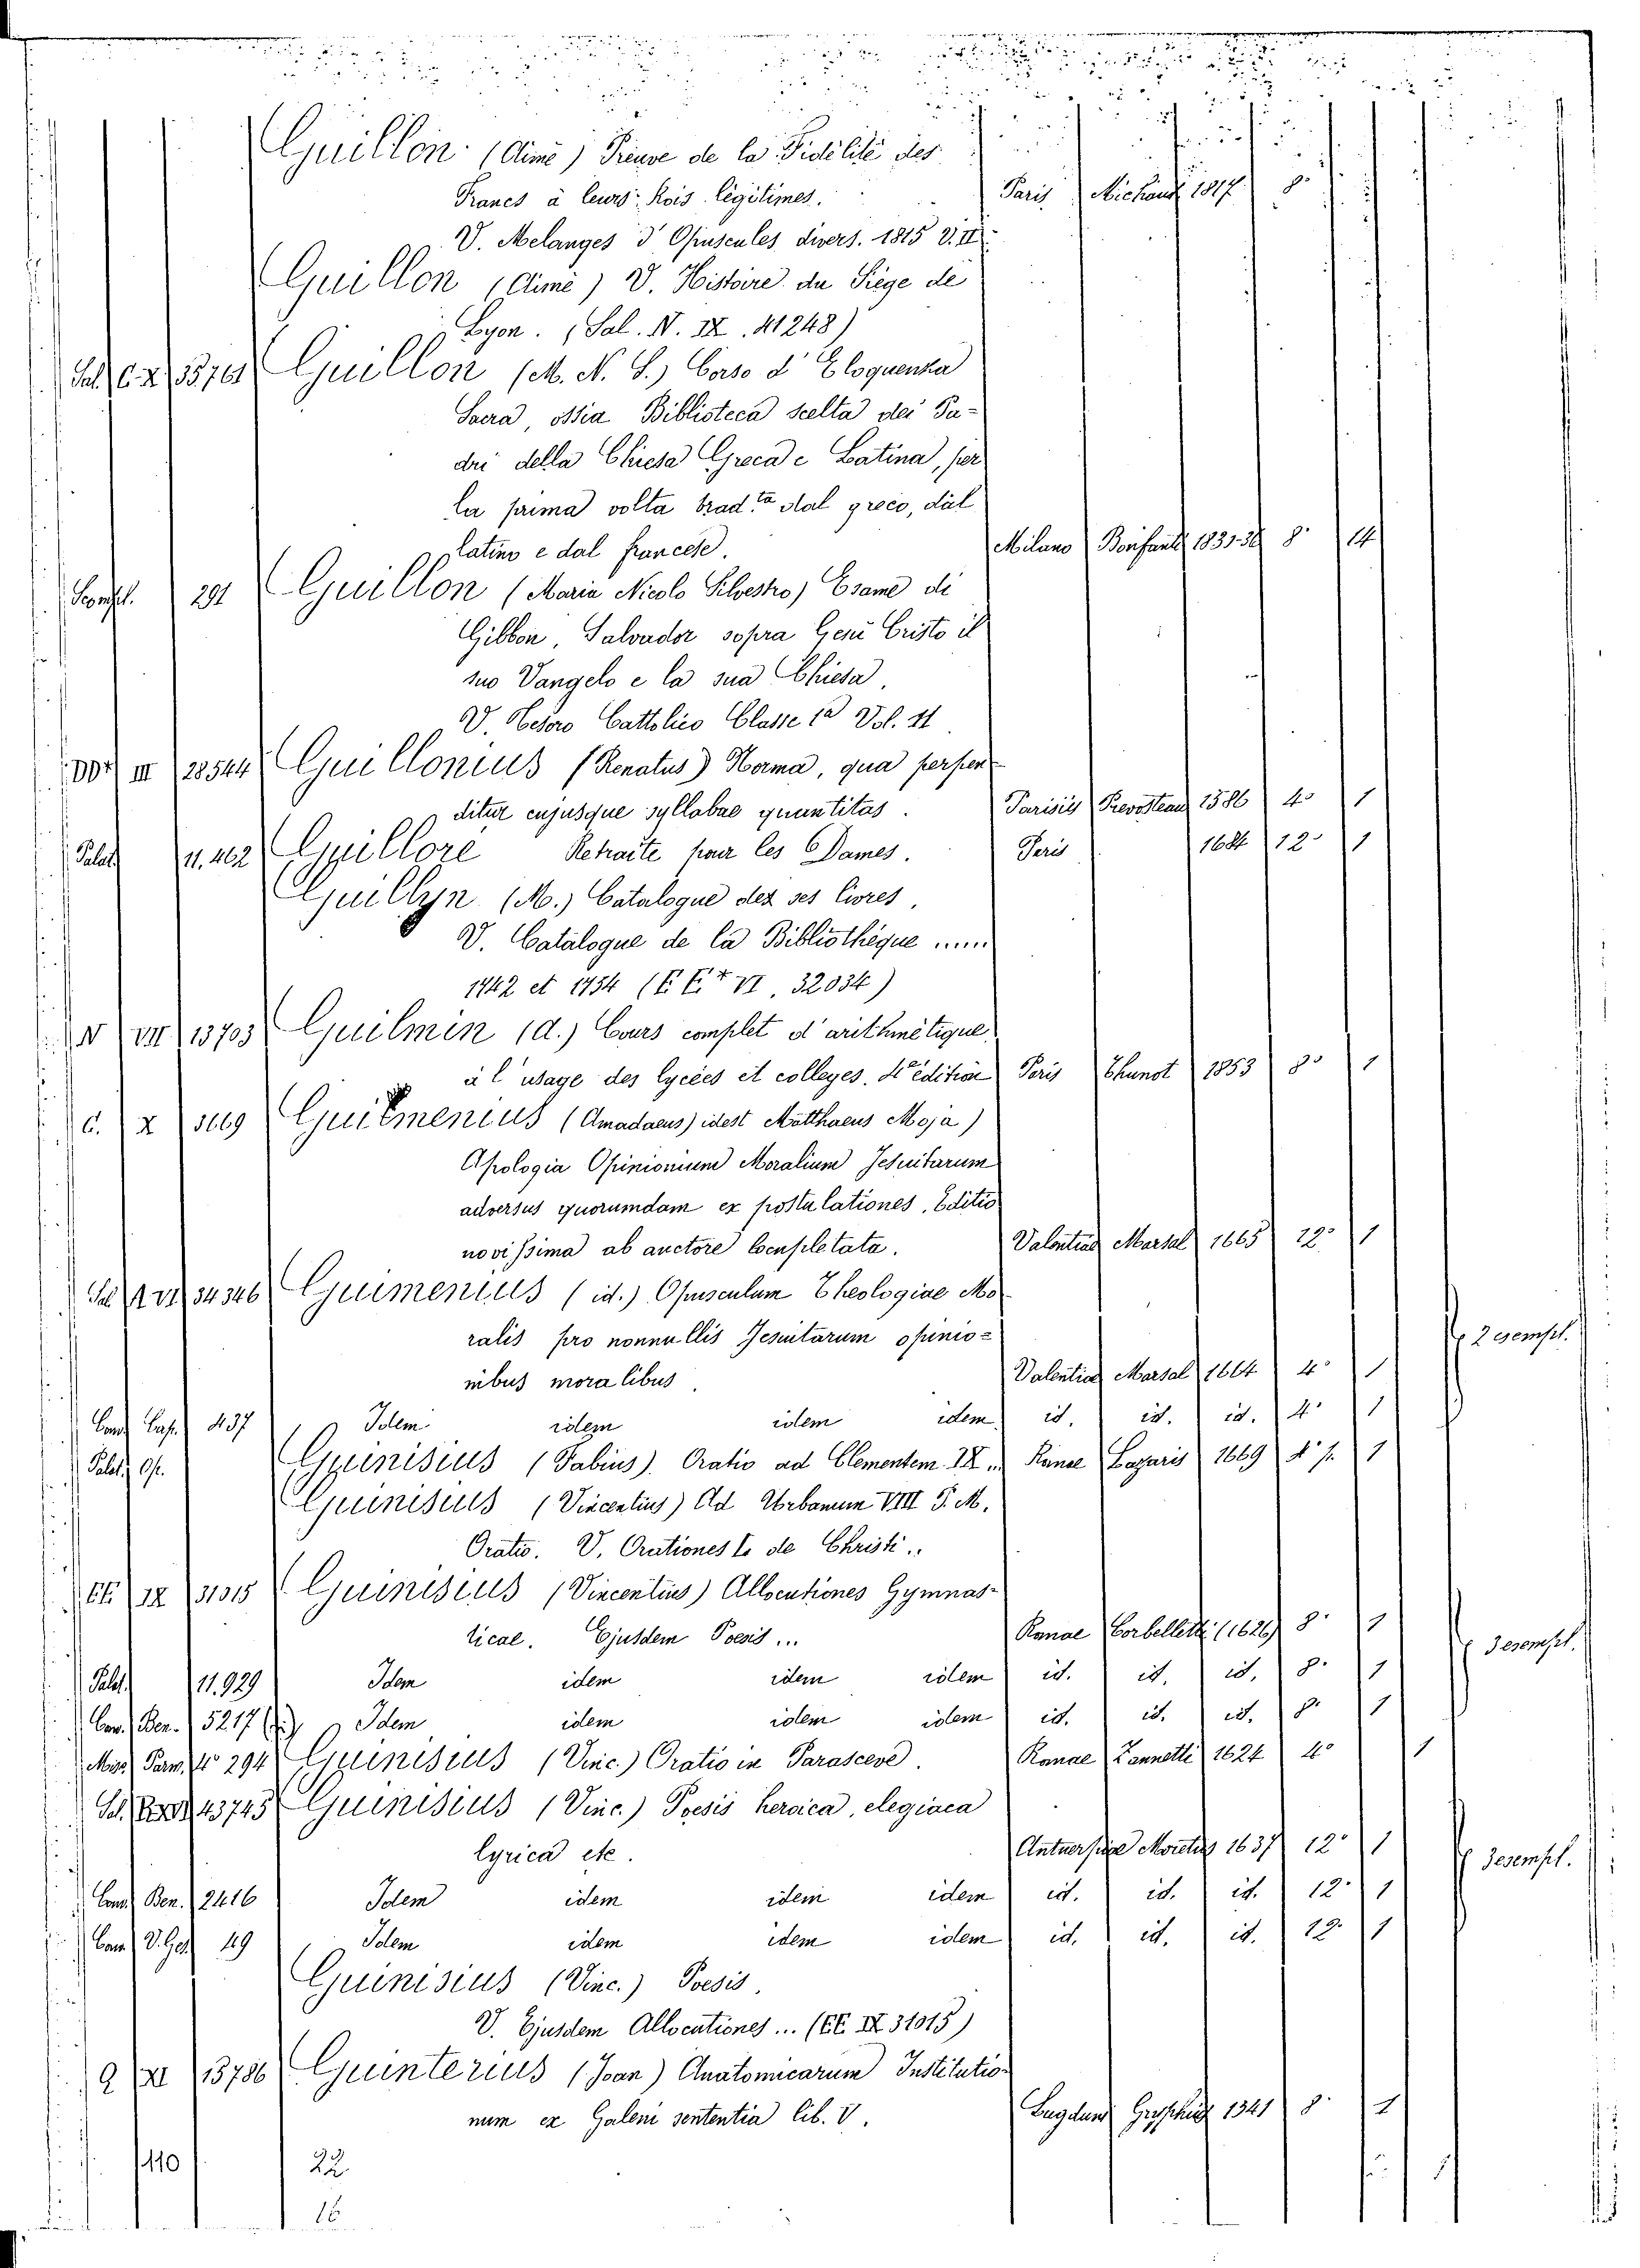 Guillon (Aimé) Preuve de la Fidélité des
Francs à leurs Rois légitimes. Paris Michaud 1817 8°
V. Melanges d'Opuscules divers. 1815 V. II
Guillon (Aimé) V. Histoire du Siège de
Lyon. (Sal. N. IX. 41248)
Sal. C. X Guillon (M. N. S.) Corso d'Eloquenza
Sacra, ossia Biblioteca scelta dei Pa-
dri della Chiesa Greca e Latina, per
la prima volta trad.ta dal greco, dal
latino e dal francese. Milano Bonfanti 8° 14
291 Guillon (Maria Nicolo Silvestro) Esame di
Gibbon, Salvador sopra Gesù Cristo il
suo Vangelo e la sua Chiesa.
V. Tesoro Cattolico Classe 1a Vol. 11
III 28544 Guillonius (Renatus) Norma, qua perpen-
ditur cujusque syllabae quantitas. Parisiis Prevosteau 1586 4° 1
Palat. 11.462 Guillore Retraite pour les Dames. Paris 1684 12° 1
Guillyn (M.) Catalogue dez ses livres,
V. Catalogue de la Bibliothèque .....
1742 et 1754 (E E+ VI, 32034)
N VII 13703 Guilmin (A.) Cours complet d'arithmétique
à l'usage des lycées et colleges. 4e édition Paris Thunot 1853 8° 1
C. X Guimenius (Amadaeus) idest Matthaeus Moja)
Apologia Opinionum Moralium Jesuitarum
adversus quorumdam ex postulationes, Editio
novissima ab auctore locupletata. Valentiae Marsal 1665 12° 1
34346 Guimenius (id.) Opusculum Theologiae Mo-
ralis pro nonnullis Jesuitarum opinio-
nibus moralibus. Valentiae Marsal 1664 4° 1 2 esempl.
Cand. Cap. 437 Idem idem idem idem id. id. id. 4° 1
Palat. Op. Guinisius (Fabius) Oratio ad Clementem IX .. Romae Lazaris 1669 4° p. 1
Guinisius (Vincentius) Ad Urbanum VIII P. M.
Oratio. V. Orationes to de Christi..
EE IX 31015 Guinisius (Vincentius) Allocutiones Gymnas-
ticae. Ejusdem Poesis... Romae Corbelletti (1626) 8° 1 3 esempl.
Palat. 11.929 Idem idem idem idem id. id. id. 8° 1
Can. Ben. 5217 Idem idem idem idem id. id. id. 8° 1
Misc. Parm. 4° 294 Guinisius (Vinc.) Oratio in Parasceve. Romae Zannetti 1624 4° 1
Sal. 43745 Guinisius (Vinc.) Poesis heroica, elegiaca
lyrica etc. Antuerpiae Moretus 1637 12° 1 3 esempl.
Cand. Ben. 2416 Idem idem idem idem id. id. id. 12° 1
Cand. V. Ges. 49 Idem idem idem idem id. id. id. 12° 1
Guinisius (Vinc.) Poesis.
V. Ejusdem Allocutiones... (EE IX 31015)
Q XI 15786 Guinterius (Joan) Anatomicarum Institutio-
num ex Galeni sententia lib. V. Lugduni Gryphius 1541 8° 1
110 22
16